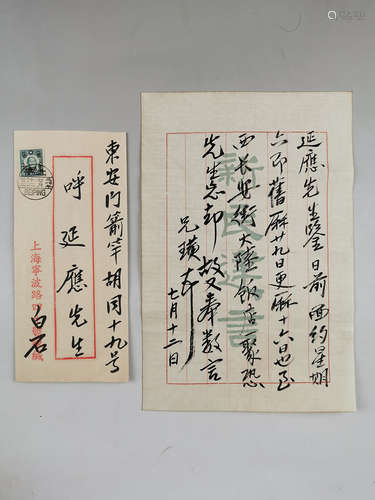 東安门箭竿胡同十九号
呼延應先生
上海寧波路
白石
PEIPING
延應先生鑒日前面約星期
六即舊厤廿九日更厤十六日也至
西长安街大陸飯店聚恐
先生忘却故又奉数言
兄璜
七月十二日
新民
言